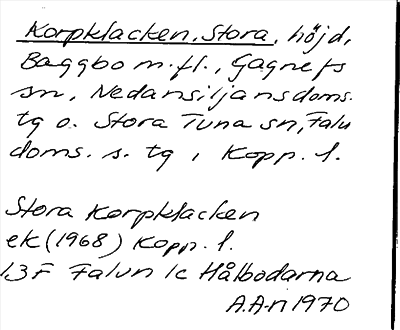 Korpklacken, Stora, höjd,
Baggbo m.fl., Gagnefs
sn, Nedansiljansdoms.
tg o. Stora Tuna sn, Falu
doms. s. tg, Kopp. l.
Stora Korpklacken
ek (1968) Kopp. l.
13F Falun 1c Hålbodarna
A.A-n 1970